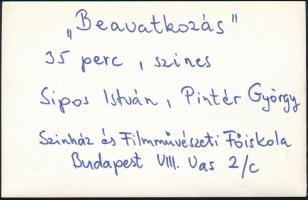 „Beavatkozás"
35 perc, szines
Sipos István, Pintér György
Szinház és Filmművészeti Főiskola
Budapest VIII. Vas 2/c